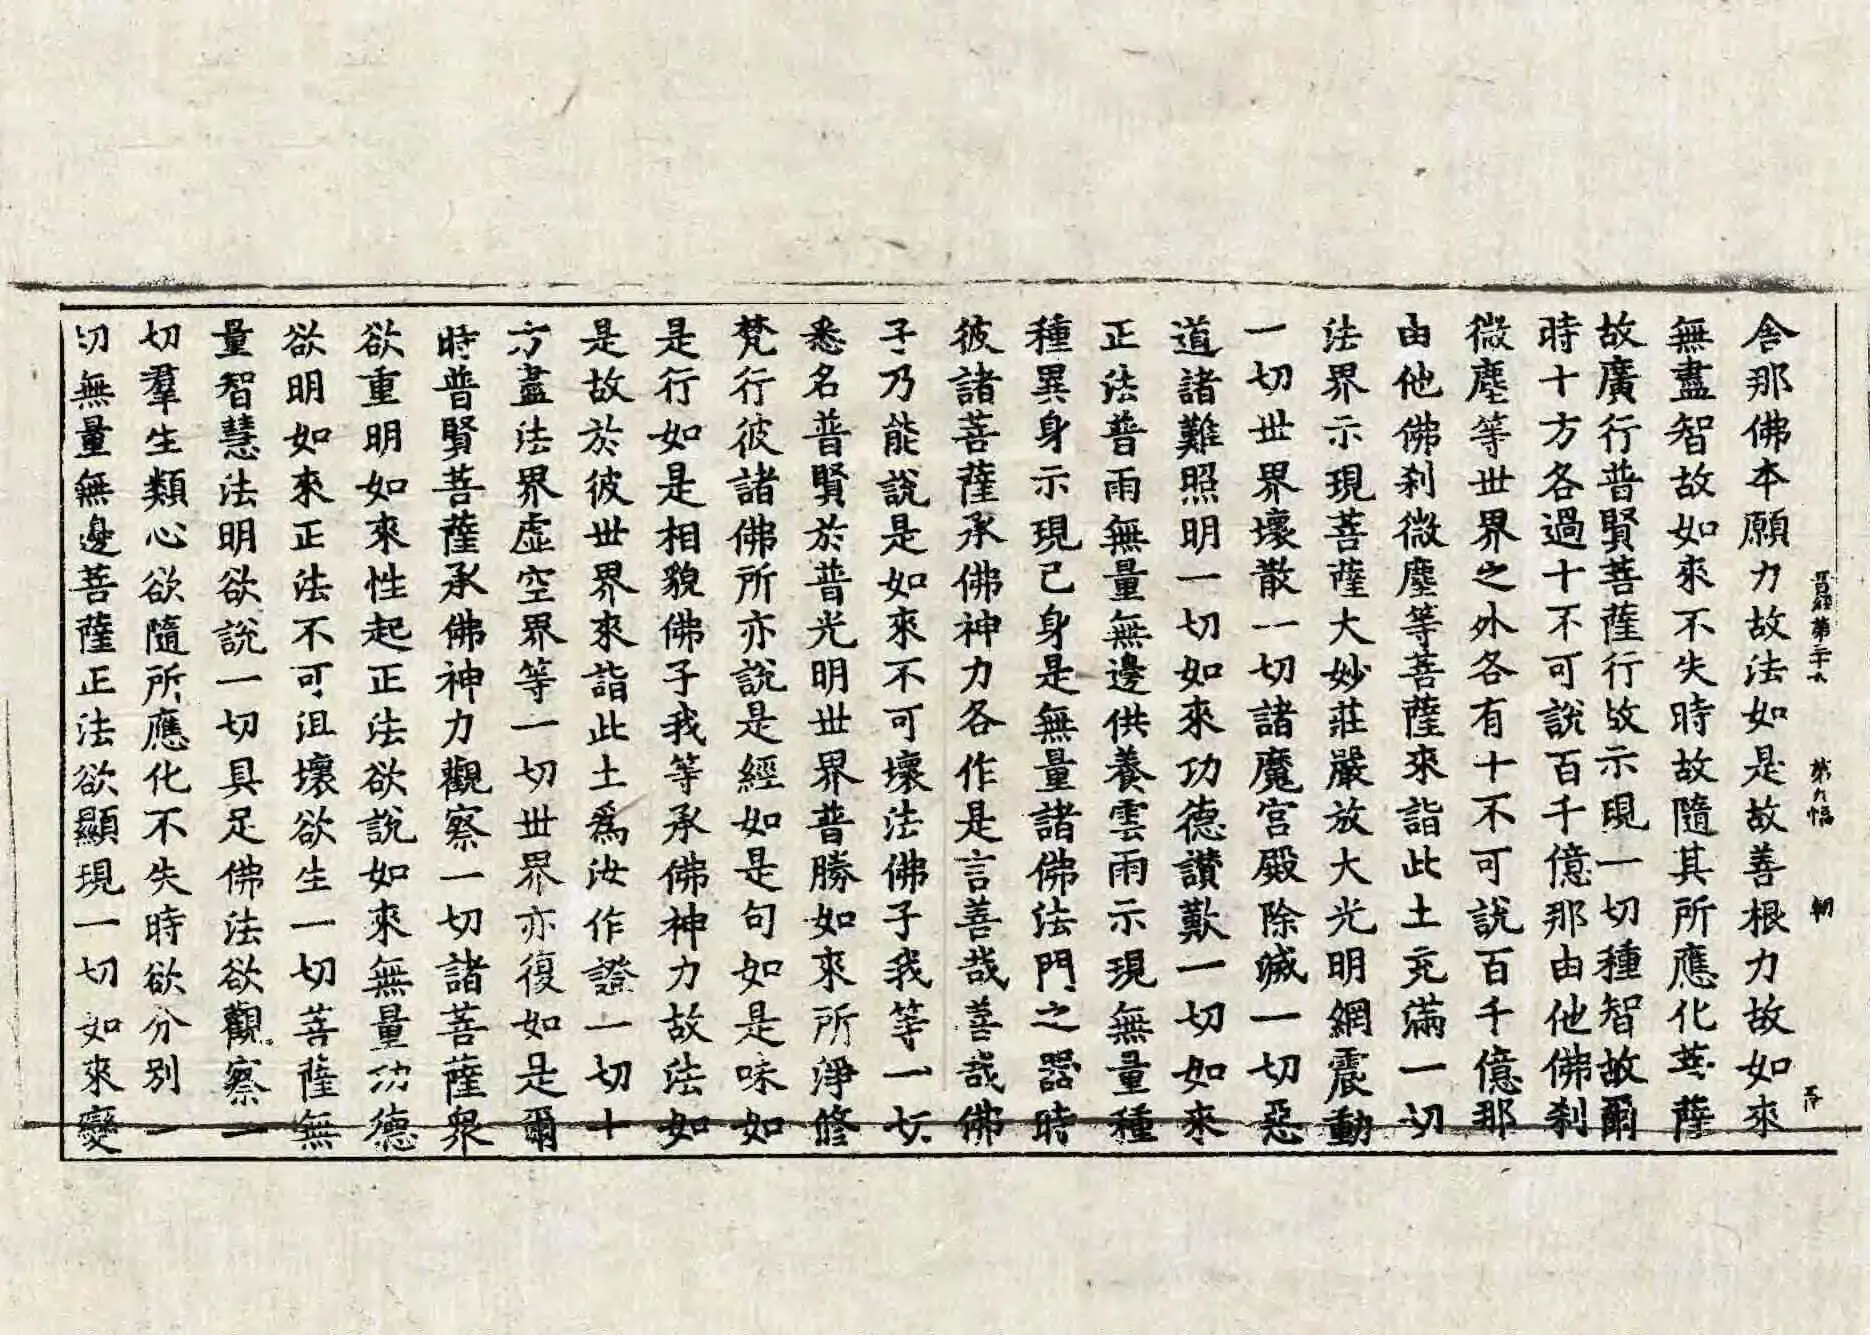 晉經第三十六 第九幅 朝
舍那佛本願力故法如是故善根力故如來
無盡智故如來不失時故隨其所應化菩薩
故廣行普賢菩薩行故示現一切種智故爾
時十方各過十不可說百千億那由他佛刹
微塵等世界之外各有十不可說百千億那
由他佛刹微塵等菩薩來詣此土充滿一切
法界示現菩薩大妙莊嚴放大光明網震動
一切世界壞散一切諸魔宮殿除滅一切惡
道諸難照明一切如來功德讃歎一切如來
正法普雨無量無邊供養雲雨示現無量種
種異身示現己身是無量諸佛法門之器時
彼諸菩薩承佛神力各作是言善哉善哉佛
子乃能說是如來不可壞法佛子我等一切
悉名普賢於普光明世界普勝如來所淨修
梵行彼諸佛所亦說是經如是句如是味如
是行如是相貌佛子我等承佛神力故法如
是故於彼世界來詣此土爲汝作證一切十
方盡法界虛空界等一切世界亦復如是爾
時普賢菩薩承佛神力觀察一切諸菩薩衆
欲重明如來性起正法欲說如來無量功德
欲明如來正法不可沮壞欲生一切菩薩無
量智慧法明欲說一切具足佛法欲觀察一
切羣生類心欲隨所應化不失時欲分別一
切無量無邊菩薩正法欲顯現一切如來變